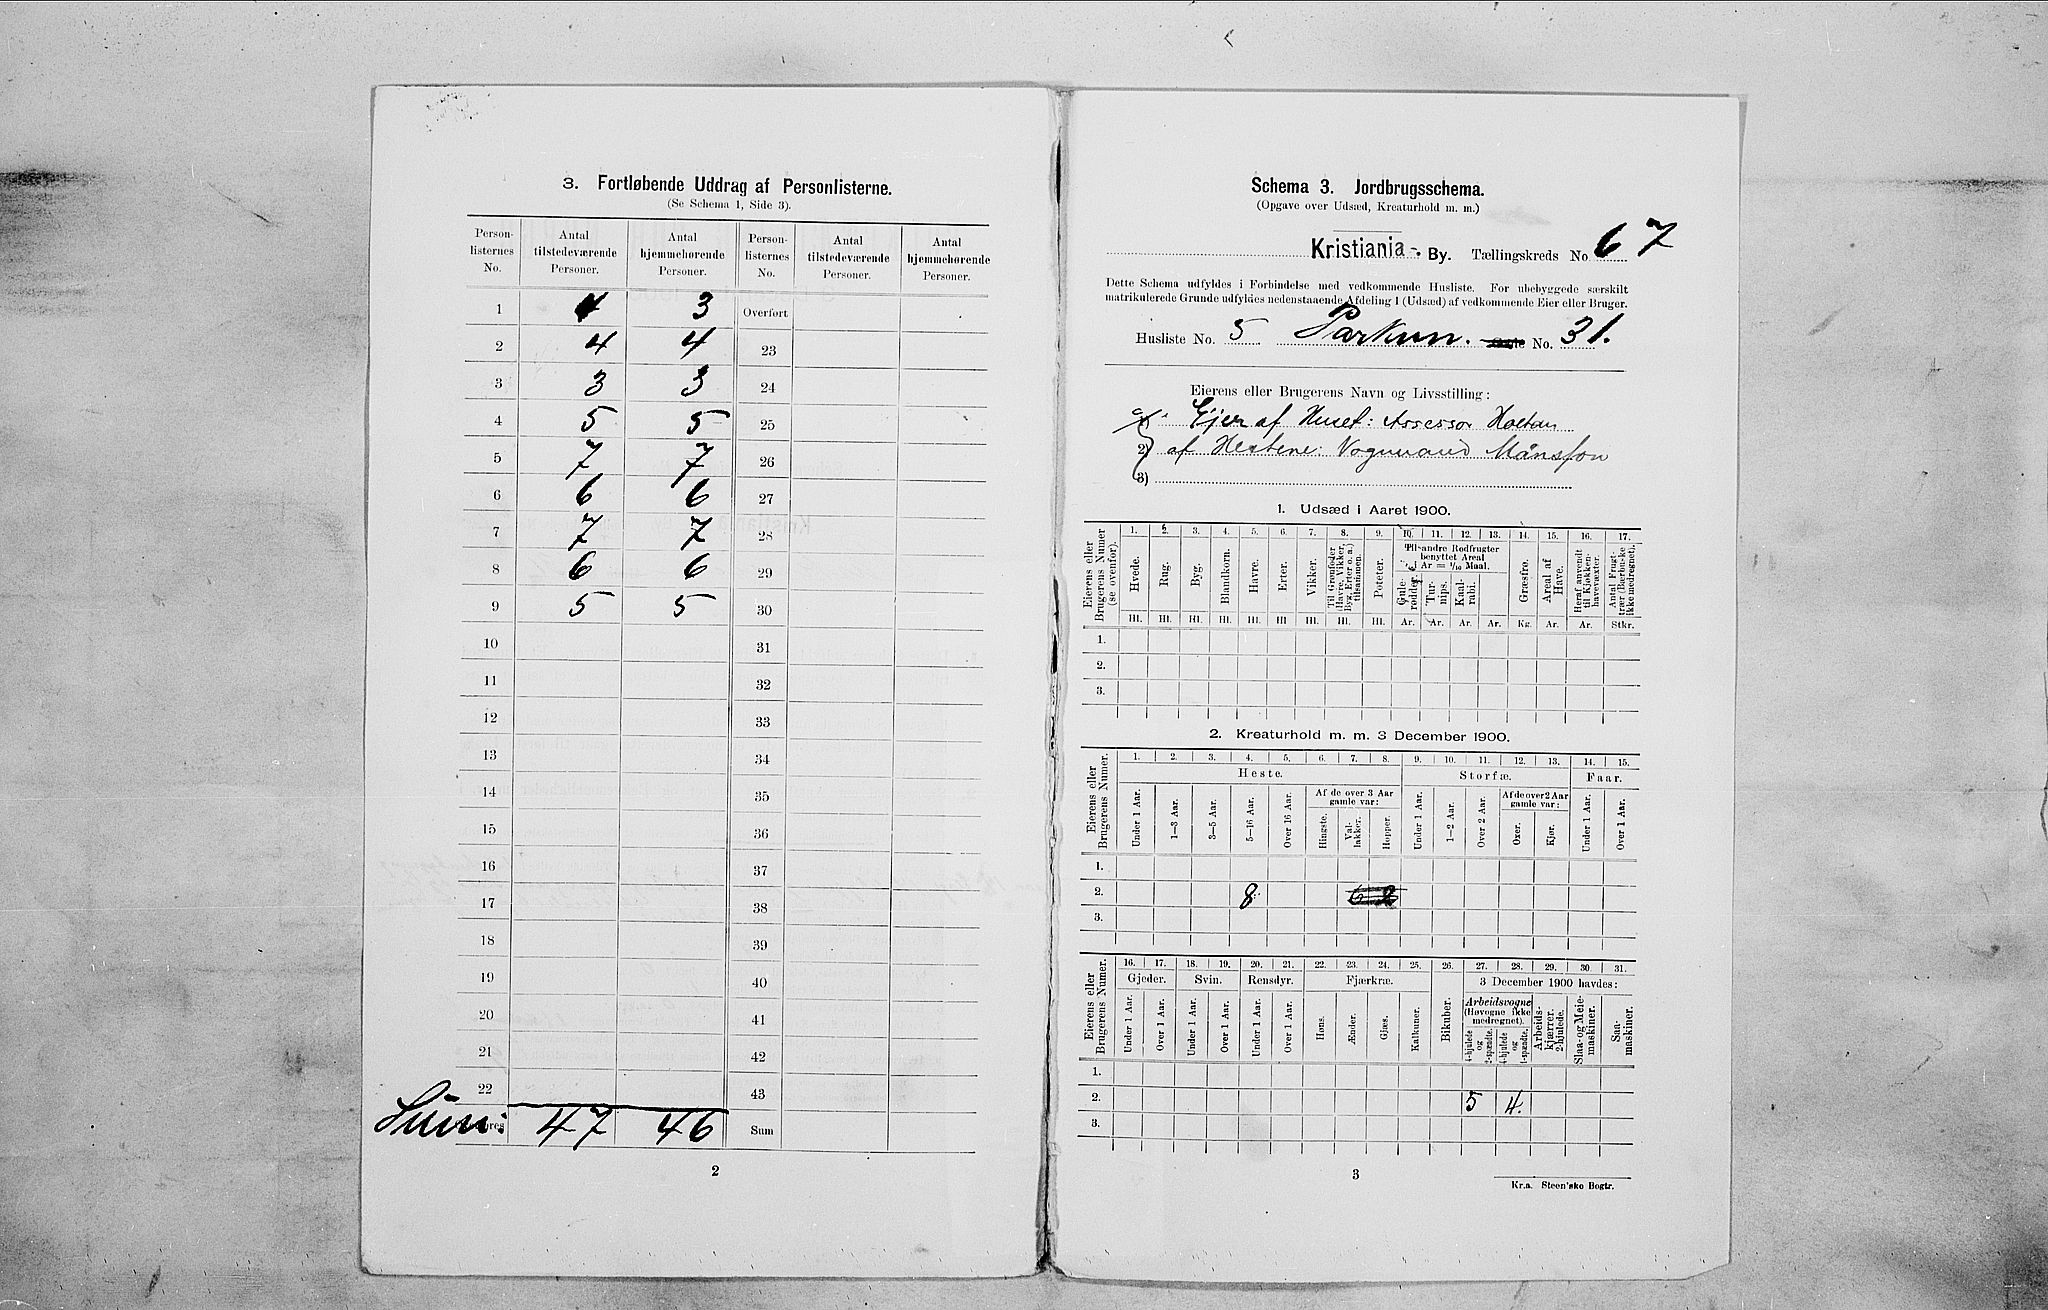 3. Fortløbende Uddrag af Personlisterne.
(Se Schema 1, Side 3).
Person-listernes No. Antal tilstedeværende Personer. Antal hjemmehørende Personer. Person-listernes No. Antal tilstedeværende Personer. Antal hjemmehørende Personer.
1 4 3 Overført
2 4 4 23
3 3 3 24
4 5 5 25
5 7 7 26
6 6 6 27
7 7 7 28
8 6 6 29
9 5 5 30
10 31
11 32
12 33
13 34
14 35
15 36
16 37
17 38
18 39
19 40
20 41
21 42
22 43
Sum: 47 46 Sum
2
Schema 3. Jordbrugsschema.
(Opgave over Udsæd, Kreaturhold m. m.)
Kristiania - By. Tællingskreds No 67
Dette Schema udfyldes i Forbindelse med vedkommende Husliste. For ubebyggede særskilt
matrikulerede Grunde udfyldes nedenstaaende Afdeling 1 (Udsæd) af vedkommende Eier eller Bruger.
Husliste No. 5 Parkvn. No. 31.
Eierens eller Brugerens Navn og Livsstilling:
Ejer af Huset: Assessor Holtan
2) af Hestene: Vognmand Månsson
3)
1. Udsæd i Aaret 1900.
Eierens eller Brugerens Numer (se ovenfor).
1. 2. 3. 4. 5. 6. 7. 8. 9. 10. 11. 12. 13. 14. 15. 16. 17.
Hvede. Rug. Byg. Blandkorn. Havre. Erter. Vikker. Til Grønfoder (Havre, Vikker, Byg, Erter o. a.) tilsammen. Poteter. Til andre Rodfrugter benyttet Areal 1 Ar = 1/10 Maal. Gule-rødder. Tur-nips. Kaal-rabi. Græsfrø. Areal af Have. Heraf anvendt til Kjøkken-havevæxter. Antal Frugt-trær (Bærbuske ikke medregnet).
Hl. Hl. Hl. Hl. Hl. Hl. Hl. Hl. Hl. Ar. Ar. Ar. Ar. Kg. Ar. Ar. Stkr.
1.
2.
3.
2. Kreaturhold m. m. 3 December 1900.
Eierens eller Brugerens Numer.
1. 2. 3. 4. 5. 6. 7. 8. 9. 10. 11. 12. 13. 14. 15.
Heste. Storfæ. Faar.
Under 1 Aar. 1—3 Aar. 3—5 Aar. 5—16 Aar. Over 16 Aar. Af de over 3 Aar gamle var: Hingste. Val-lakker. Hopper. Under 1 Aar. 1—2 Aar. Over 2 Aar. Af de over 2 Aar gamle var: Oxer. Kjør. Under 1 Aar. Over 1 Aar.
1.
2. 8 6 2
3.
Eierens eller Brugerens Numer.
16. 17. 18. 19. 20. 21. 22. 23. 24. 25. 26. 27. 28. 29. 30. 31.
Gjeder. Svin. Rensdyr. Fjærkræ. Bikuber. 3 December 1900 havdes:
Under 1 Aar. Over 1 Aar. Under 1 Aar. Over 1 Aar. Under 1 Aar. Over 1 Aar. Høns. Ænder. Gjæs. Kalkuner. Arbeidsvogne (Høvogne ikke medregnet). 4-hjulede og 2-spændte. 4-hjulede og 1-spændte. Arbeids-kjærrer, 2-hjulede. Slaa- og Meie-maskiner. Saa-maskiner.
1.
2. 5 4.
3.
3
Kr.a. Steen'ske Bogtr.